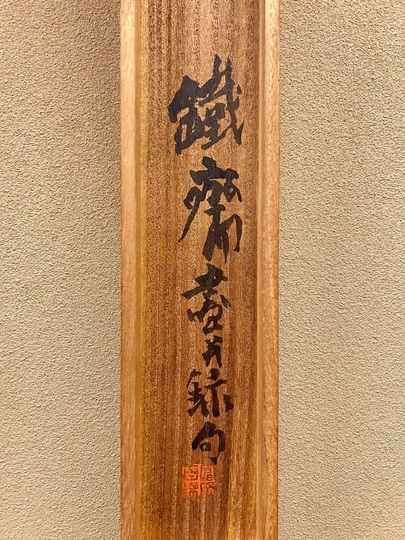 鐵齋畫并録句